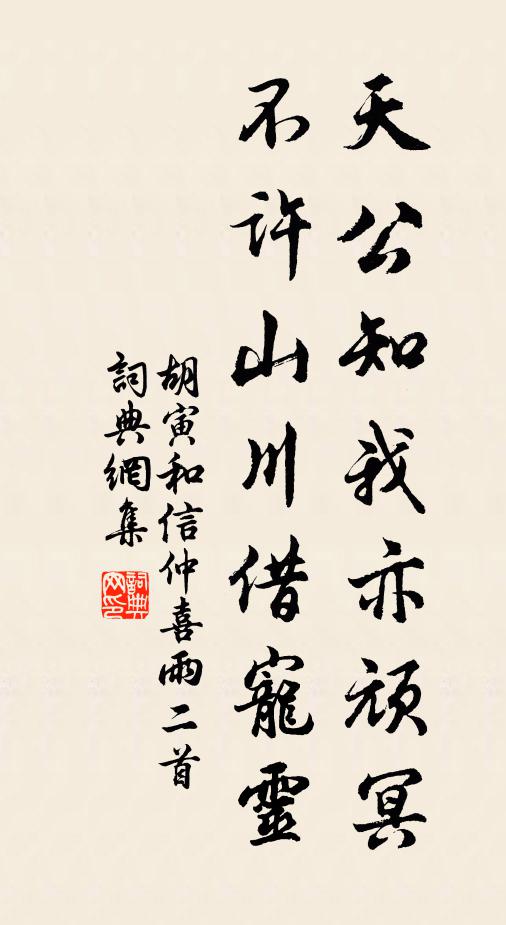 天公知我亦頑冥
不許山川借寵靈
胡寅和信仲喜雨二首
詞典網集
詞典网印